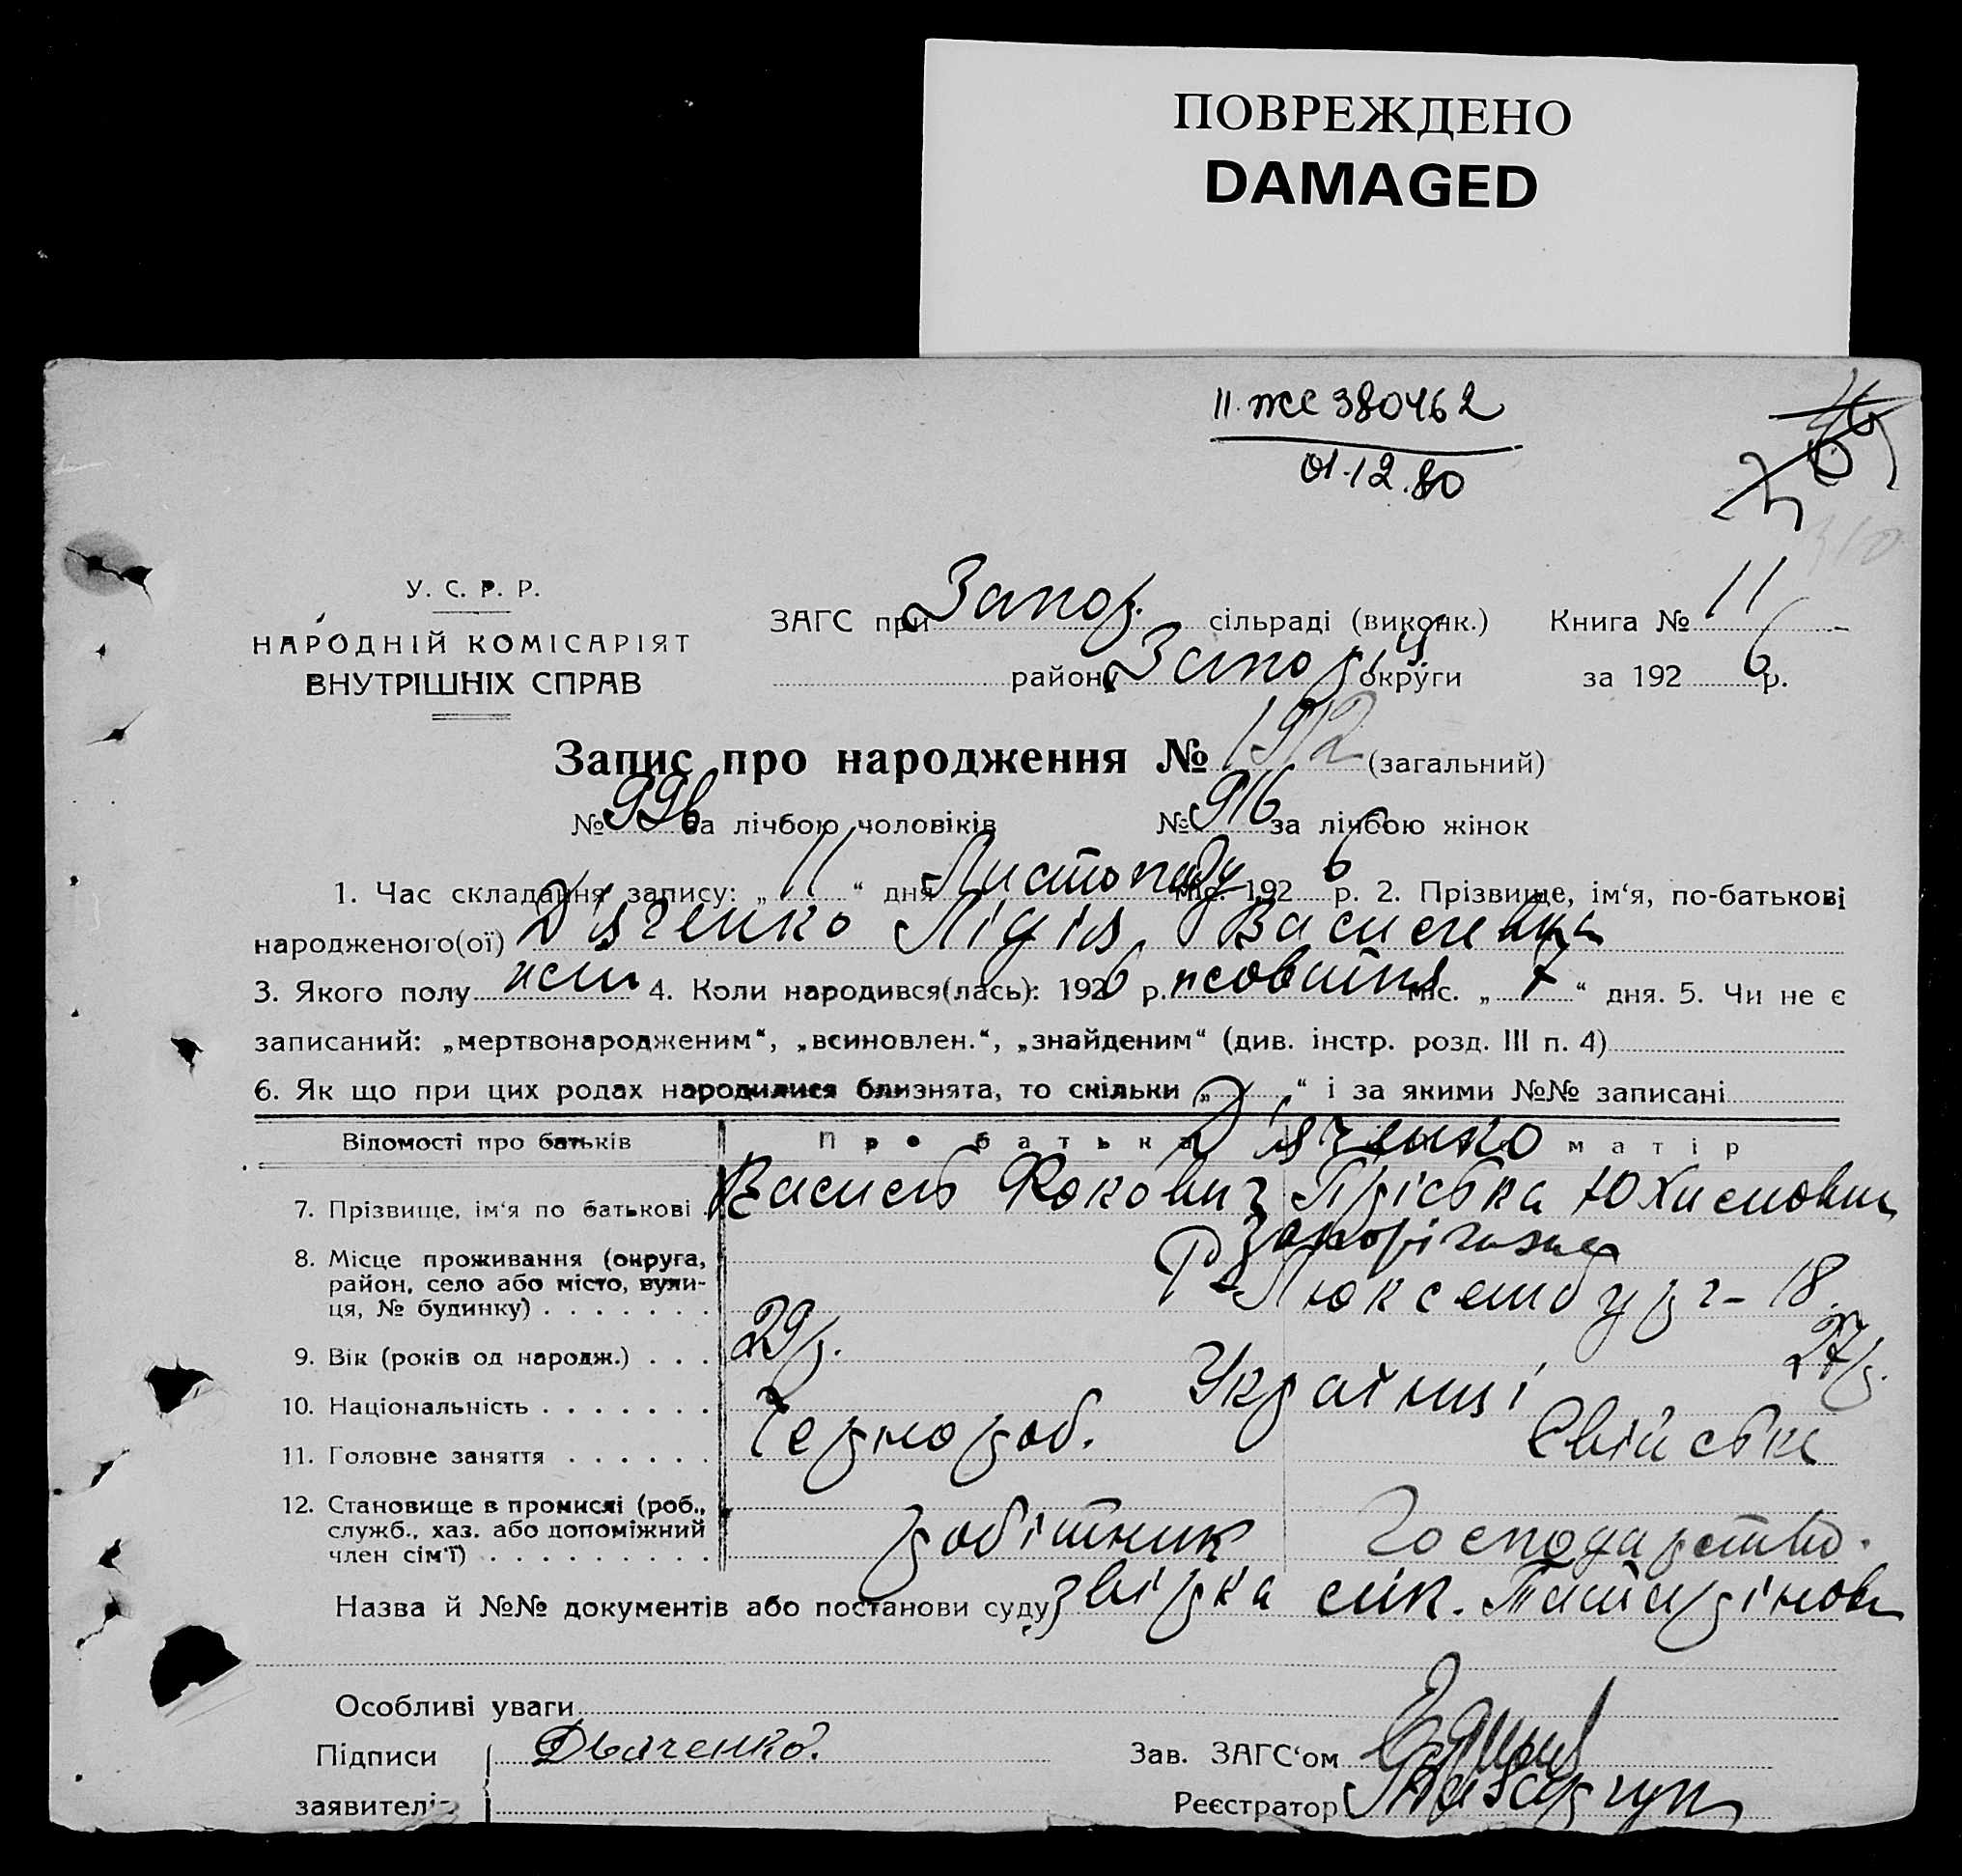 ПОВРЕЖДЕНО
DAMAGED
380462
01.12.80
У. С. Р. Р.
НАРОДНІЙ КОМІСАРІЯТ
ВНУТРІШНІХ СПРАВ
ЗАГС при Запор. сільраді (виконк.) Книга № 11
району Запор округи за 1926 р.
Запис про народження № 1912 (загальний)
№ 996 за лічбою чоловіків № 916 за лічбою жінок
1. Час складання запису: „11“ дня Листопаду міс. 1926 р. 2. Прізвище, ім‘я, по-батькові
народженого(ої) Дʼяченко Лідія Василевна
3. Якого полу жін 4. Коли народився(лась): 1926 р. жовтня міс. „7“ дня. 5. Чи не є
записаний: „мертвонародженим“, „всиновлен.“, „знайденим“ (див. інстр. розд. III п. 4)
6. Як що при цих родах народилися близнята, то скільки „ “ і за якими №№ записані
Відомості про батьків Про батька Дʼяченко матір
7. Прізвище, ім‘я по батькові Василь Фокович Пріська Юхимовна
8. Місце проживання (округа, район, село або місто, вулиця, № будинку) Запоріжжя
Р. Люксембург - 18.
9. Вік (років од народж.) 29 р. 27 р.
10. Національність Українці
11. Головне заняття Чернороб. Свійське
12. Становище в промислі (роб., служб., хаз. або допоміжний член сім‘ї) робітник Господарство.
Назва й №№ документів або постанови суду
Особливі уваги
Підписи Дьяченко. Зав. ЗАГС‘ом
заявителів Реєстратор